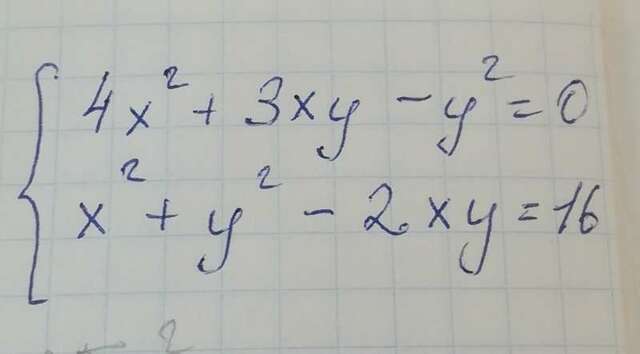 4x² + 3xy - y² = 0
x² + y² - 2xy = 16